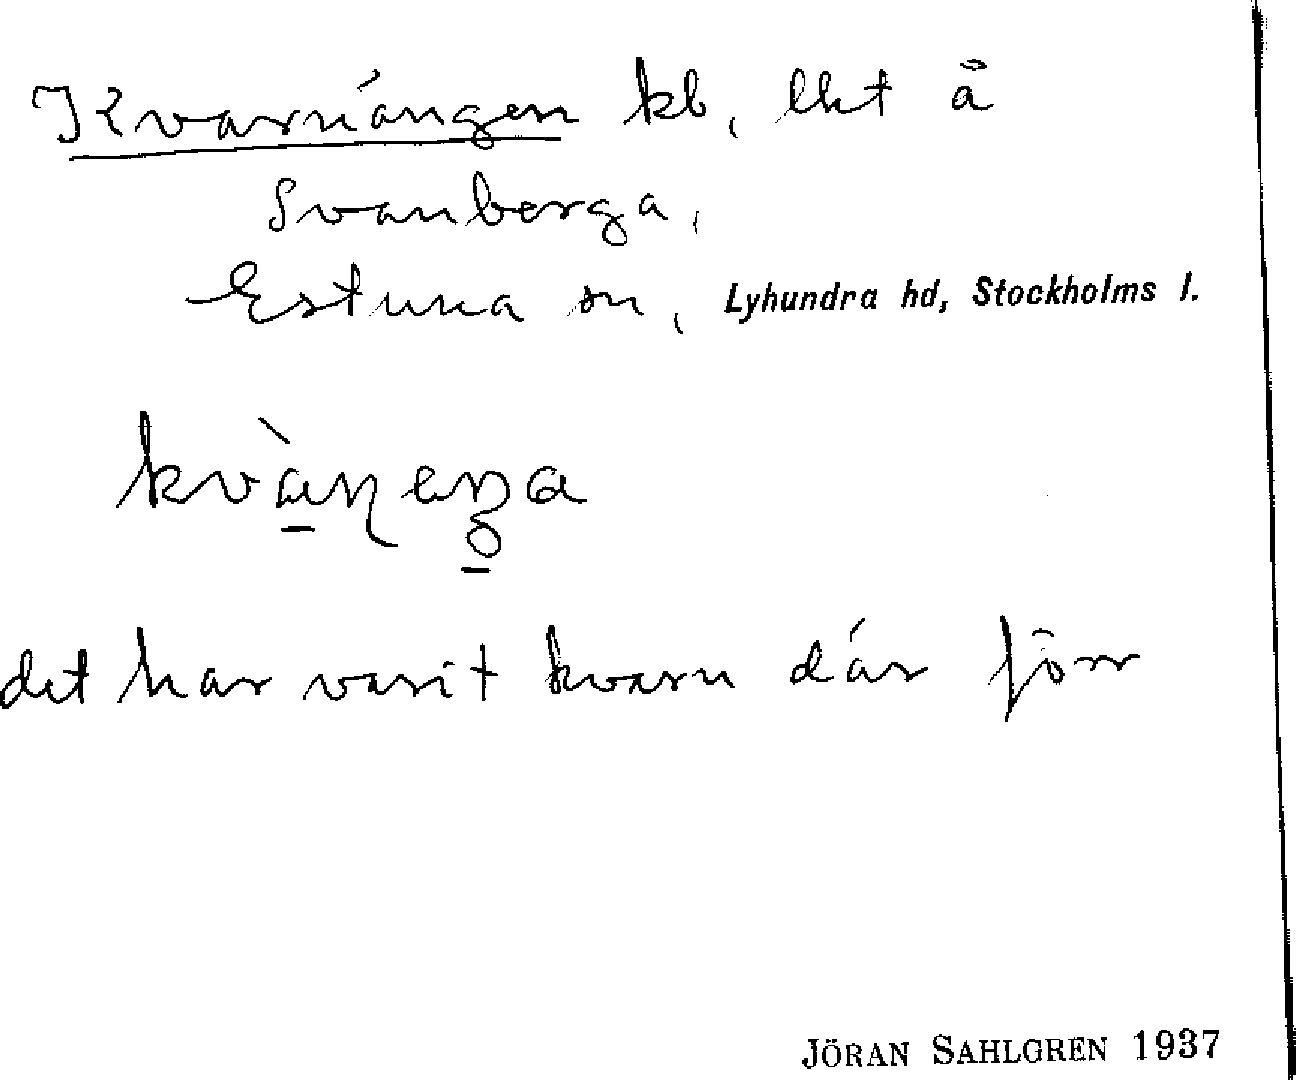 Kvarnängen kb, lht å
Svanberga,
Estuna sn, Lyhundra hd, Stockholms l.
det har varit kvarn där förr
JÖRAN SAHLGREN 1937